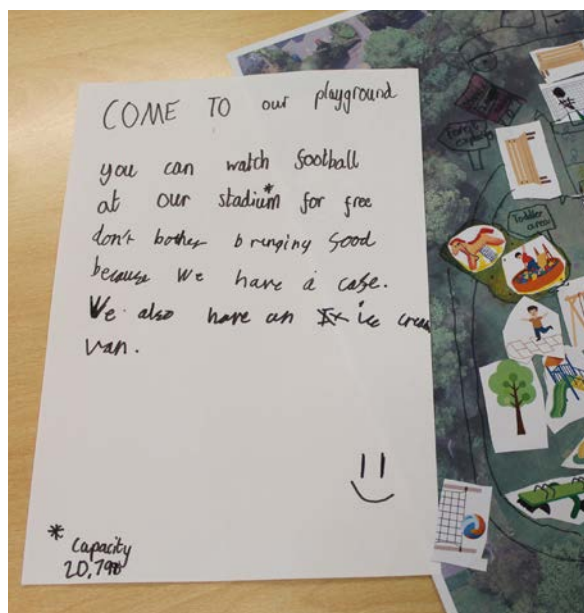 COME TO our playground
you can watch football
at our stadium* for free
don't bother bringing food
because we have a cafe.
We also have an ice cream
van.
* Capacity
Forest
Toddler
area